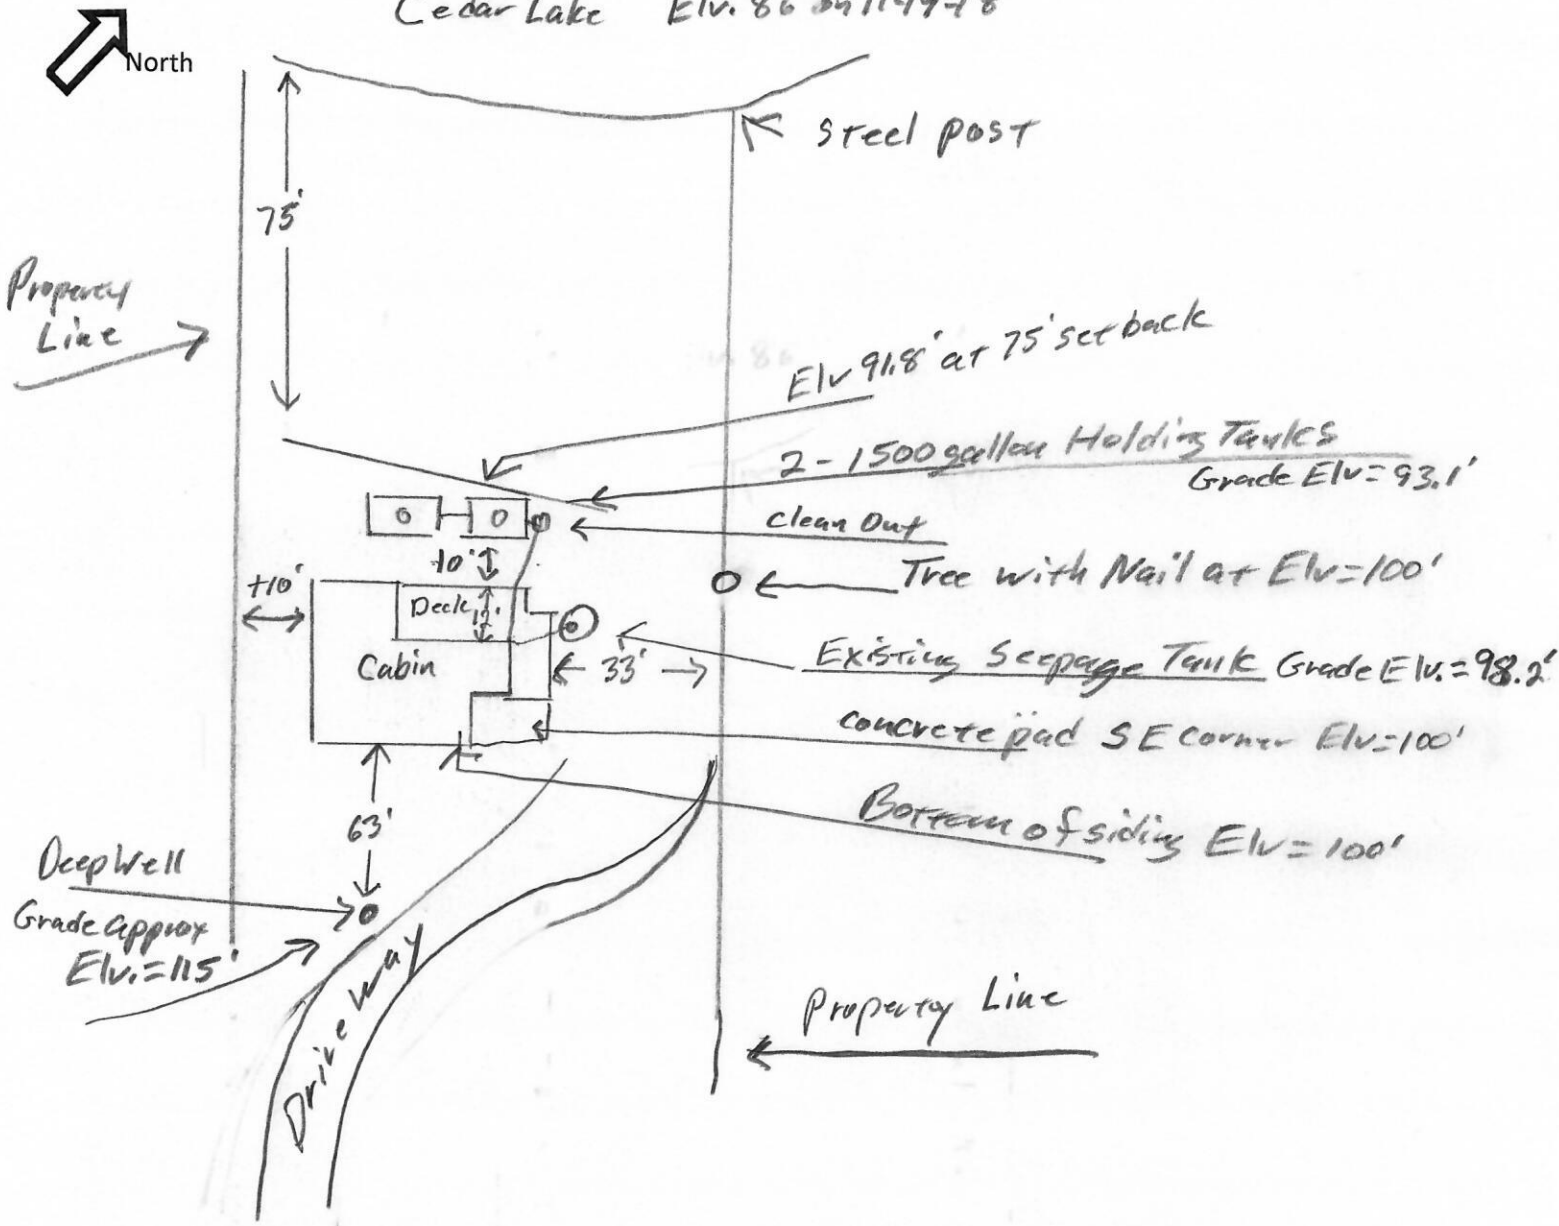 Cedar Lake Elv. 86
North
Steel post
75'
Property
Line
Elv 91.8' at 75' setback
2-1500 gallon Holding Tanks
Grade Elv = 93.1'
Clean Out
10'
+10'
Tree with Nail at Elv=100'
Deck 12'
Existing Seepage Tank Grade Elv. = 98.2'
Cabin
33'
concrete pad SE Corner Elv=100'
63'
Bottom of siding Elv = 100'
Deep Well
Grade approx
Elv. = 115'
Driveway
Property Line